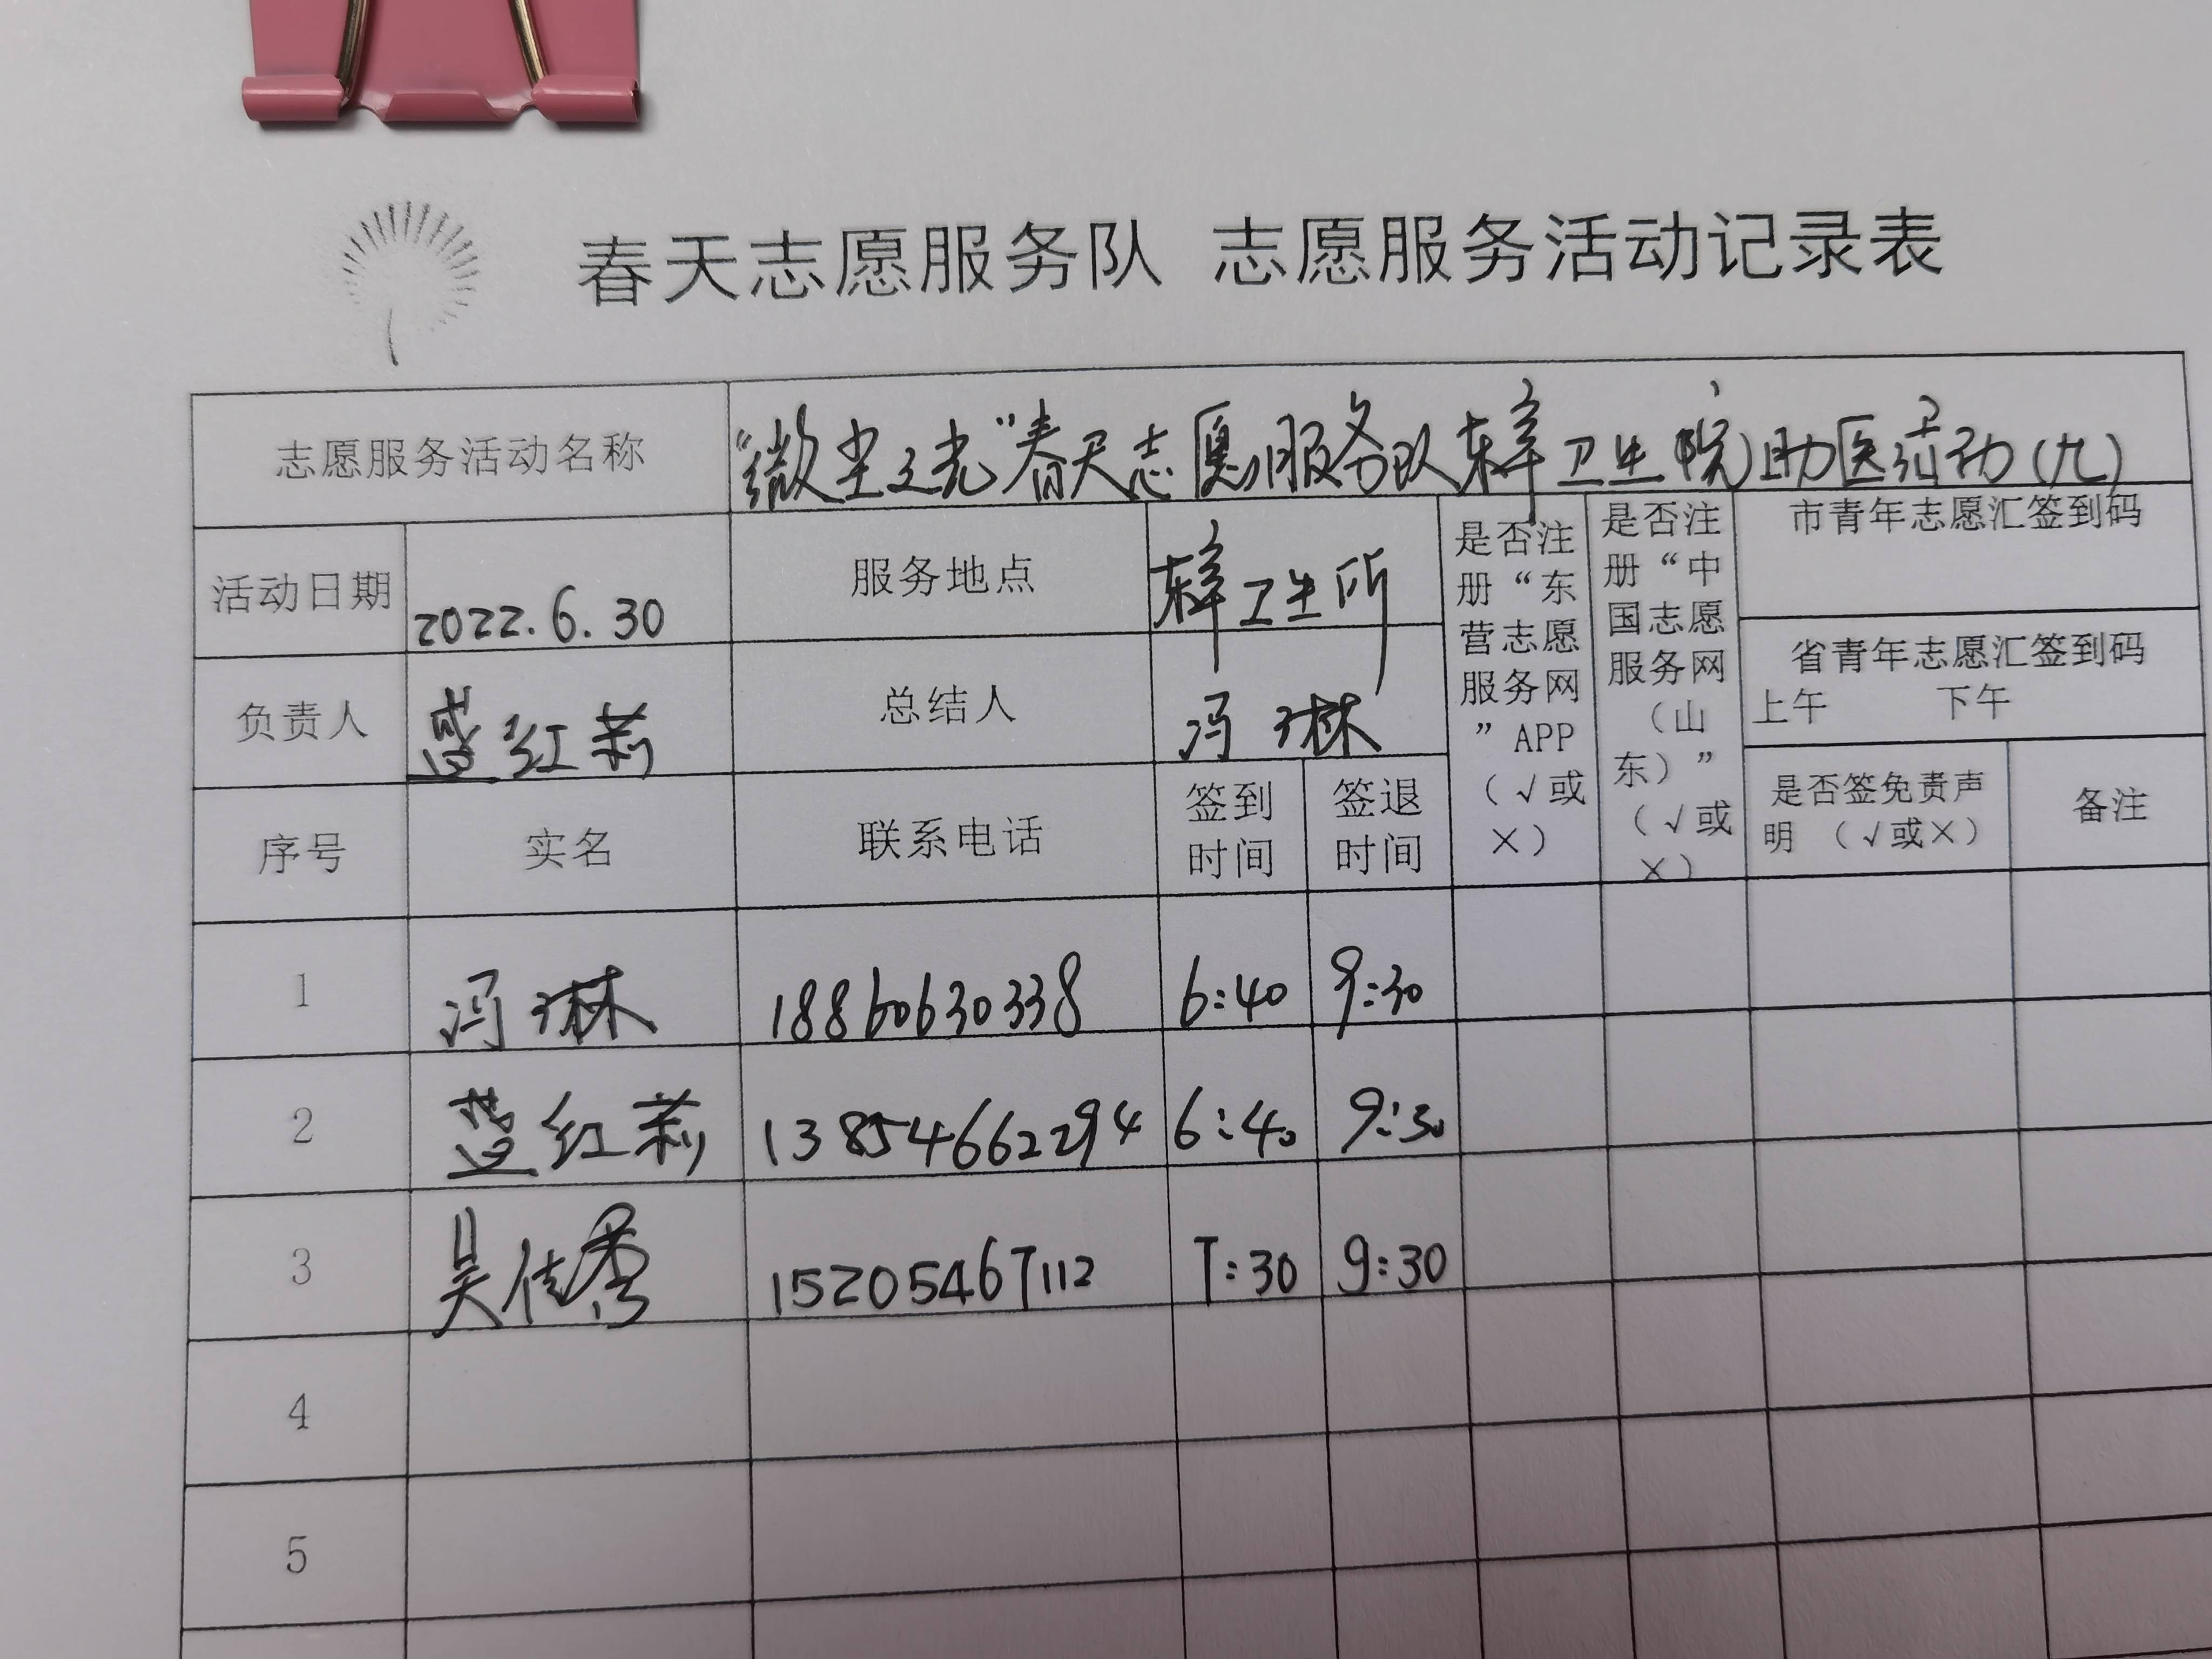 春天志愿服务队 志愿服务活动记录表
志愿服务活动名称 “微尘之光”春天志愿服务队东辛卫生院助医活动(九)
活动日期 2022.6.30 服务地点 东辛卫生所
是否注册“东营志愿服务网”APP（√或×）
是否注册“中国志愿服务网（山东）”（√或×）
市青年志愿汇签到码
省青年志愿汇签到码
上午 下午
负责人 红莉 总结人 冯琳
序号 实名 联系电话 签到时间 签退时间 是否签免责声明（√或×） 备注
1 冯琳 18860630338 6:40 9:30
2 红莉 13854662294 6:40 9:30
3 吴佳秀 15205467112 7:30 9:30
4
5